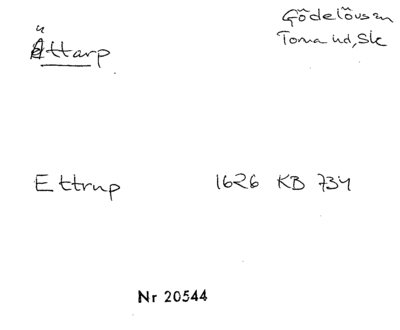 Gödelövs sn
Ättarp
Torna hd, Sk
Ettrup 1626 KB 734
Nr 20544